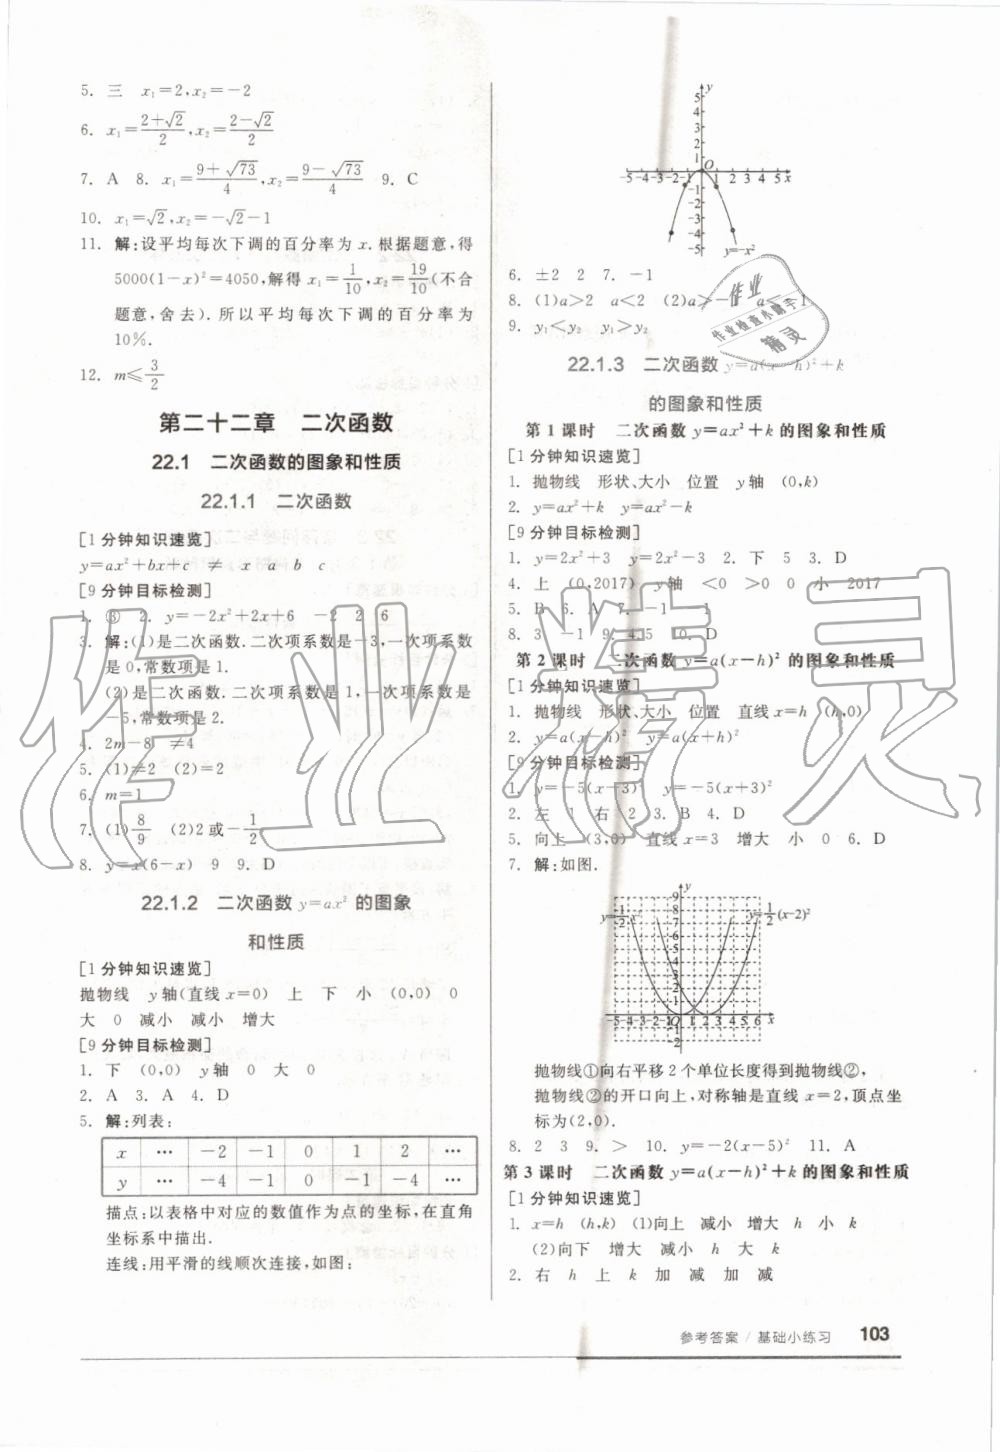 5. 三 x₁=2,x₂=−2
6. x₁=(2+√2)/2,x₂=(2−√2)/2
7. A 8. x₁=(9+√73)/4,x₂=(9−√73)/4 9. C
10. x₁=√2,x₂=−√2−1
11. 解:设平均每次下调的百分率为 x.根据题意,得
5000(1−x)²=4050,解得 x₁=1/10,x₂=19/10(不合
题意,舍去). 所以平均每次下调的百分率为
10%.
12. m≤3/2
第二十二章 二次函数
22.1 二次函数的图象和性质
22.1.1 二次函数
[1分钟知识速览]
y=ax²+bx+c ≠ x a b c
[9分钟目标检测]
1. ③ 2. y=−2x²+2x+6 −2 2 6
3. 解:(1)是二次函数.二次项系数是−3,一次项系数
是0,常数项是1.
(2)是二次函数.二次项系数是1,一次项系数是
−5,常数项是2.
4. 2m−8 ≠4
5. (1)≠2 (2)=2
6. m=1
7. (1)8/9 (2)2或−1/2
8. y=x(6−x) 9 9. D
22.1.2 二次函数 y=ax² 的图象
和性质
[1分钟知识速览]
抛物线 y轴(直线x=0) 上 下 小 (0,0) 0
大 0 减小 减小 增大
[9分钟目标检测]
1. 下 (0,0) y轴 0 大 0
2. A 3. A 4. D
5. 解:列表:
x … −2 −1 0 1 2 …
y … −4 −1 0 −1 −4 …
描点:以表格中对应的数值作为点的坐标,在直角
坐标系中描出.
连线:用平滑的线顺次连接,如图:
y
5
4
3
2
1
O
-5-4-3-2-1 1 2 3 4 5 x
-1
-2
-3
-4
-5
y=−x²
6. ±2 2 7. −1
8. (1)a>2 a<2 (2)a>− a< 1
9. y₁<y₂ y₁>y₂
22.1.3 二次函数 y=a(x−h)²+k
的图象和性质
第1课时 二次函数 y=ax²+k 的图象和性质
[1分钟知识速览]
1. 抛物线 形状、大小 位置 y轴 (0,k)
2. y=ax²+k y=ax²−k
[9分钟目标检测]
1. y=2x²+3 y=2x²−3 2. 下 5 3. D
4. 上 (0,2017) y轴 <0 >0 0 小 2017
5. B 6. A 7. −1 1
8. 3 −1 9. 4 5 10. D
第2课时 二次函数 y=a(x−h)² 的图象和性质
[1分钟知识速览]
1. 抛物线 形状、大小 位置 直线x=h (h,0)
2. y=a(x−h)² y=a(x+h)²
[9分钟目标检测]
1. y=−5(x+3)² y=−5(x+3)²
2. 左 1 右 2 3. B 4. D
5. 向上 (3,0) 直线x=3 增大 小 0 6. D
7. 解:如图.
y
9
8
7
6
5
4
3
2
1
y=1/2x² y=1/2(x-2)²
-5-4-3-2-1O 1 2 3 4 5 6 x
-2
抛物线①向右平移2个单位长度得到抛物线②,
抛物线②的开口向上,对称轴是直线 x=2,顶点坐
标为(2,0).
8. 2 3 9. > 10. y=−2(x−5)² 11. A
第3课时 二次函数 y=a(x−h)²+k 的图象和性质
[1分钟知识速览]
1. x=h (h,k) (1)向上 减小 增大 h 小 k
(2)向下 增大 减小 h 大 k
2. 右 h 上 k 加 减 加 减
参考答案 / 基础小练习 103
作业精灵
作业
作业检查小帮手
精灵